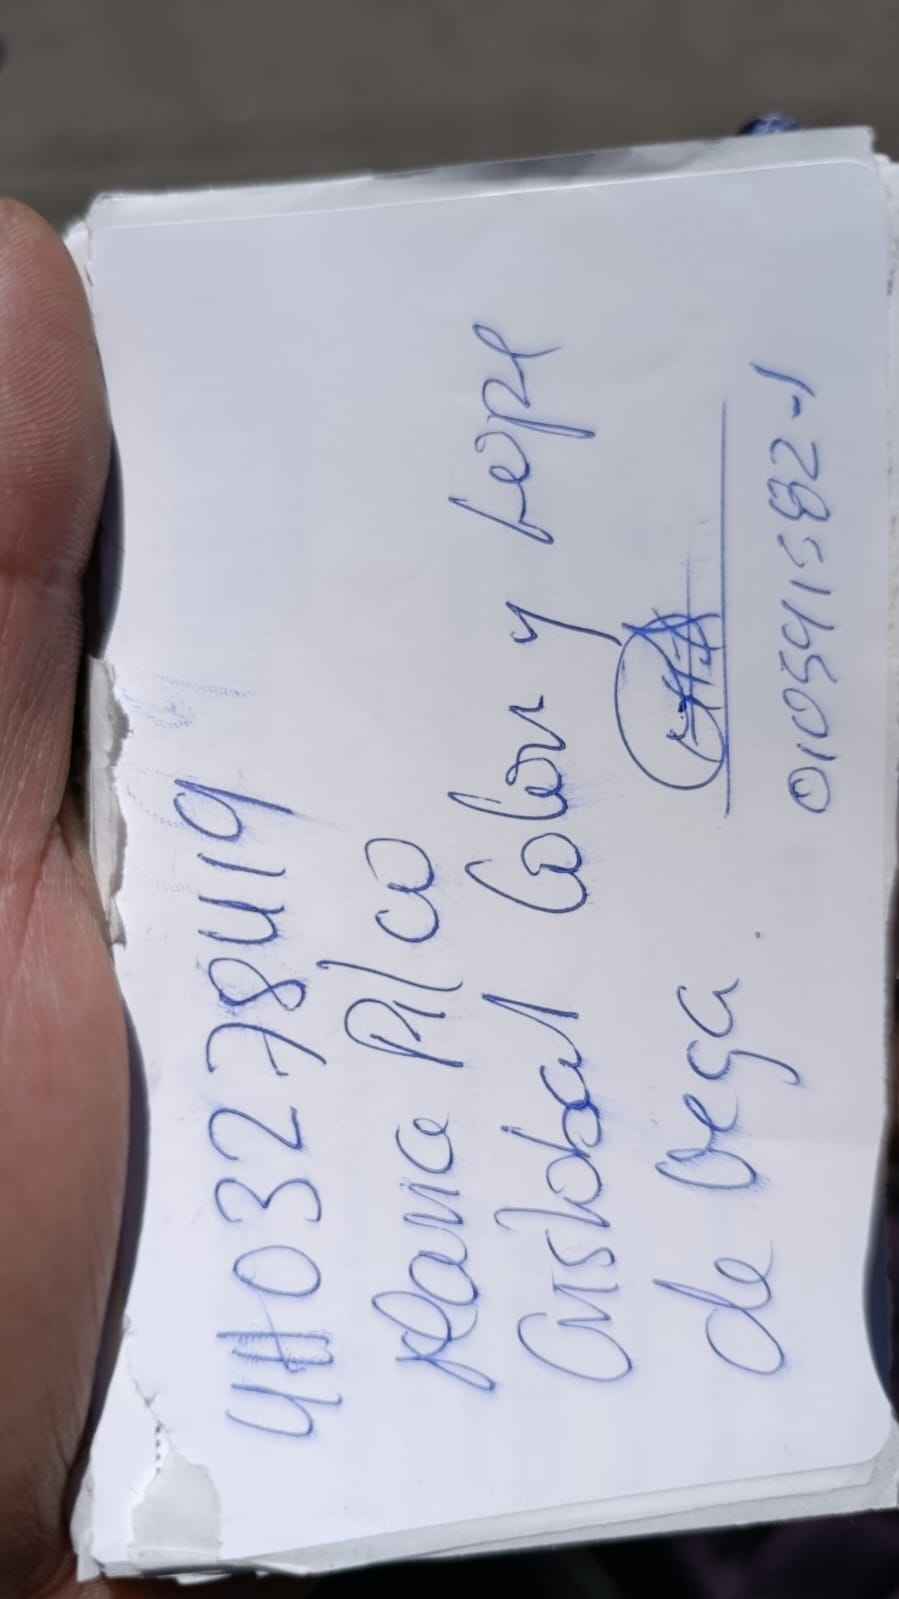 41103278419
Maria Pilco
Cristobal Colon y Lope
de Vega
010591582-1